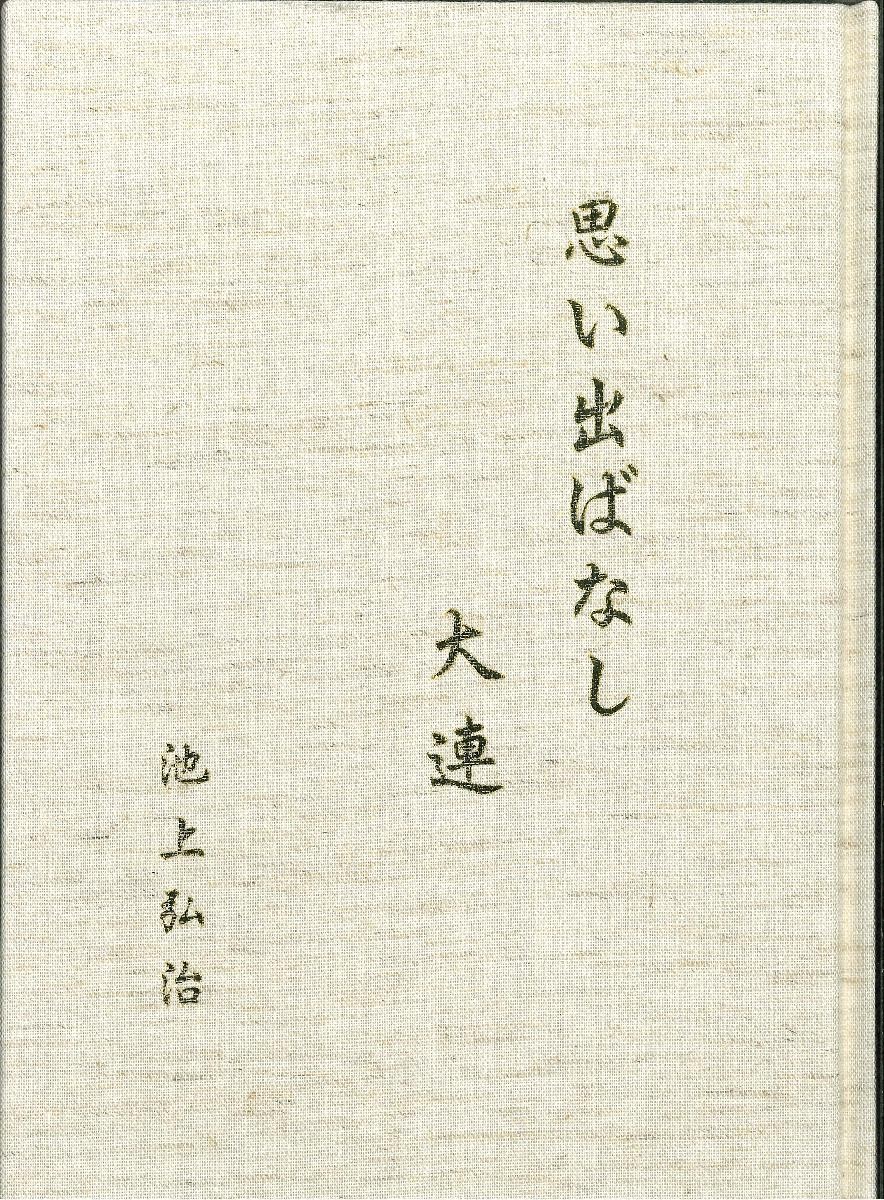 思い出ばなし
大連
池上弘治